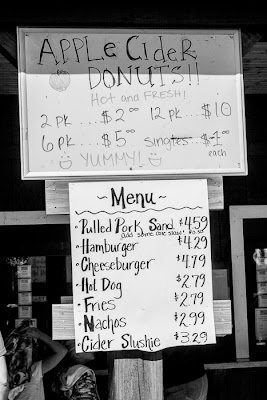 APPLE CIDER
DONUTS!!
HOT and FRESH!
2 pk....$2⁰⁰ 12 pk....$10
6 pk....$5⁰⁰ singles...$1⁰⁰
YUMMY! each
~ Menu ~
• Pulled Pork Sand $4.59
add some cole slaw!
• Hamburger $4.29
• Cheeseburger $4.79
• Hot Dog $2.79
• Fries $2.79
• Nachos $2.99
• Cider Slushie $3.29